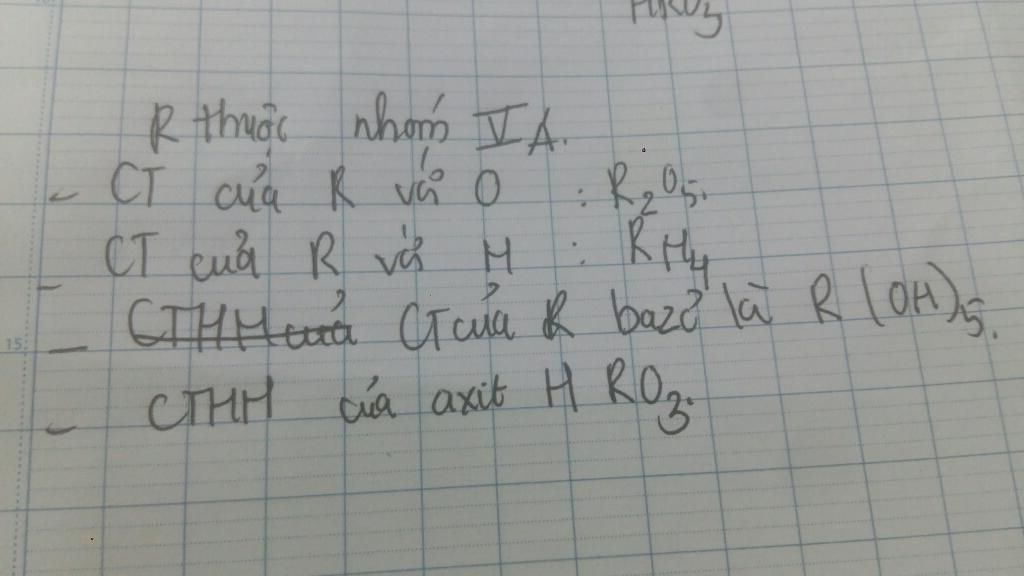 HRO3
R thuộc nhóm VA.
- CT của R với O : R2O5.
- CT của R với H : RH4
- CTHH của CT của R bazơ là R(OH)5.
- CTHH của axit HRO3.